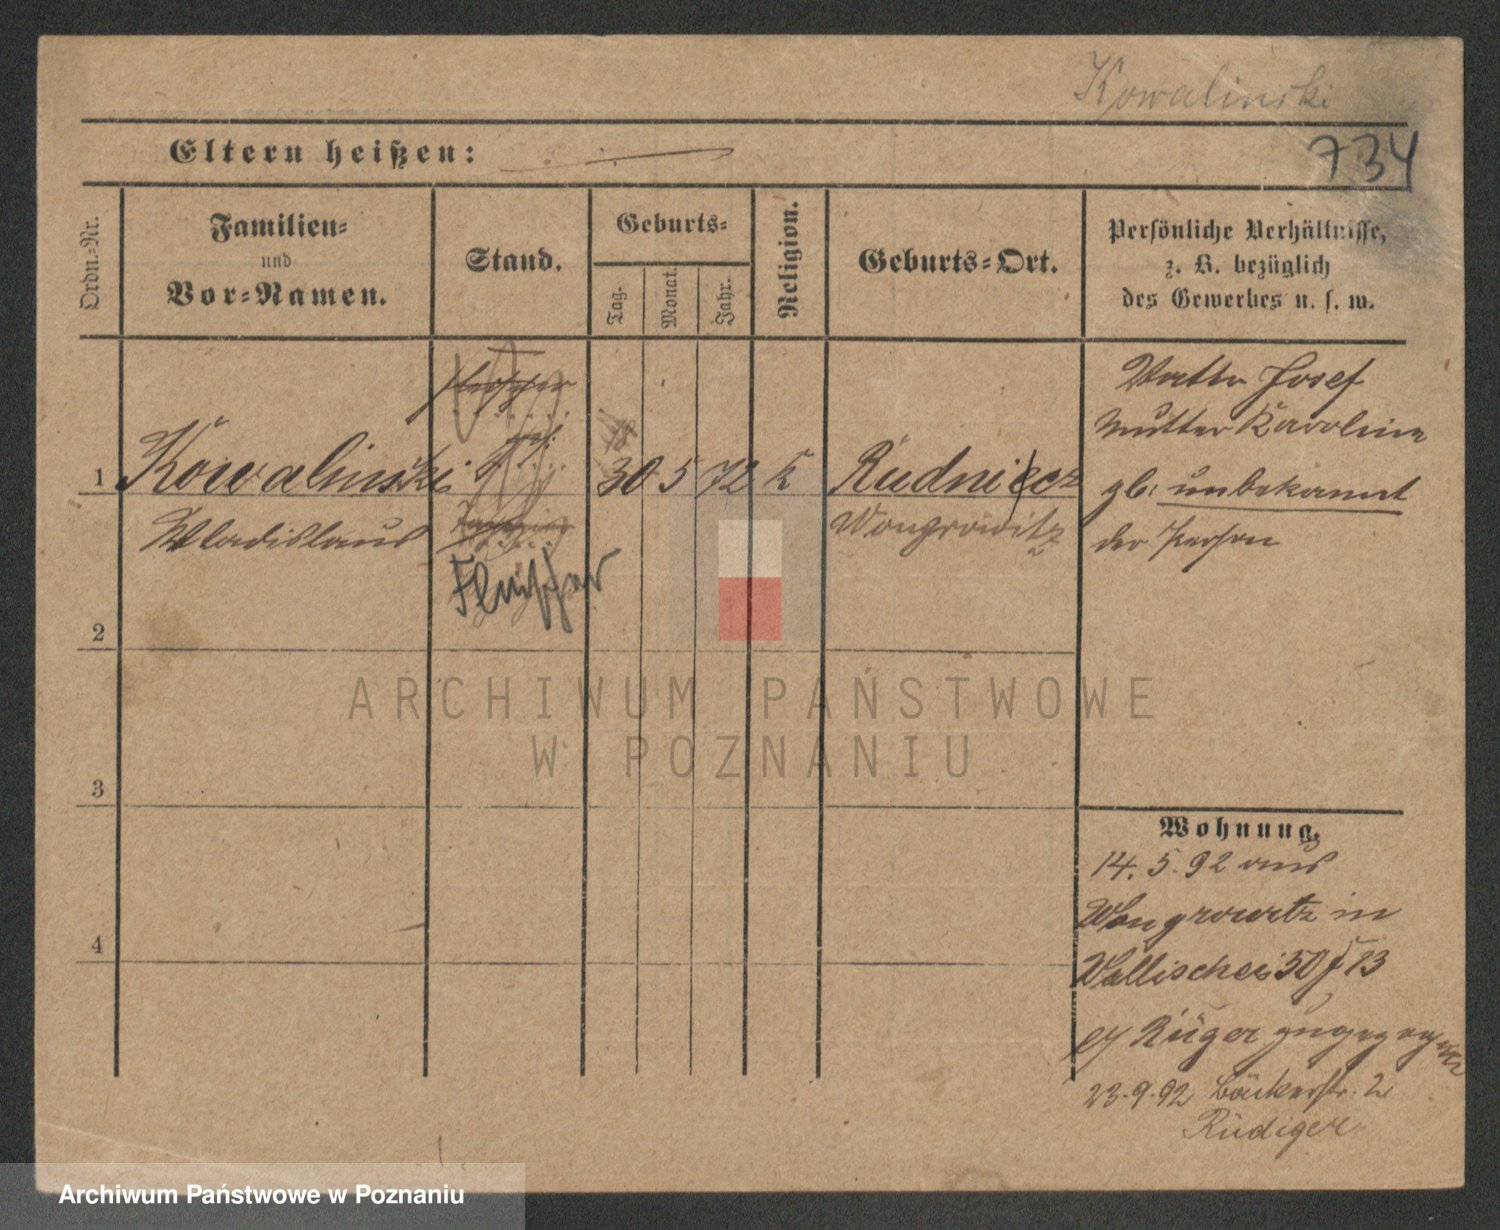 Kowalinski
734
Eltern heißen:
Ordn.-Nr.
Familien-
und
Vor-Namen.
Stand.
Geburts-
Tag.
Monat.
Jahr.
Religion.
Geburts-Ort.
Persönliche Verhältnisse,
z. B. bezüglich
des Gewerbes u. s. w.
1
Kowalinski
Wladislaus
Fleischer
30 5 72 k
Rudnicz
Wongrowitz
Vatter Josef
Mutter Karoline
gb: unbekannt
der Person
2
3
4
Wohnung.
14. 5. 92 aus
Wongrowitz in
Wallischei 50/73
Rüger
23.9.92 Bäckerstr. 2
Rüdiger
ARCHIWUM PAŃSTWOWE
W POZNANIU
Archiwum Państwowe w Poznaniu